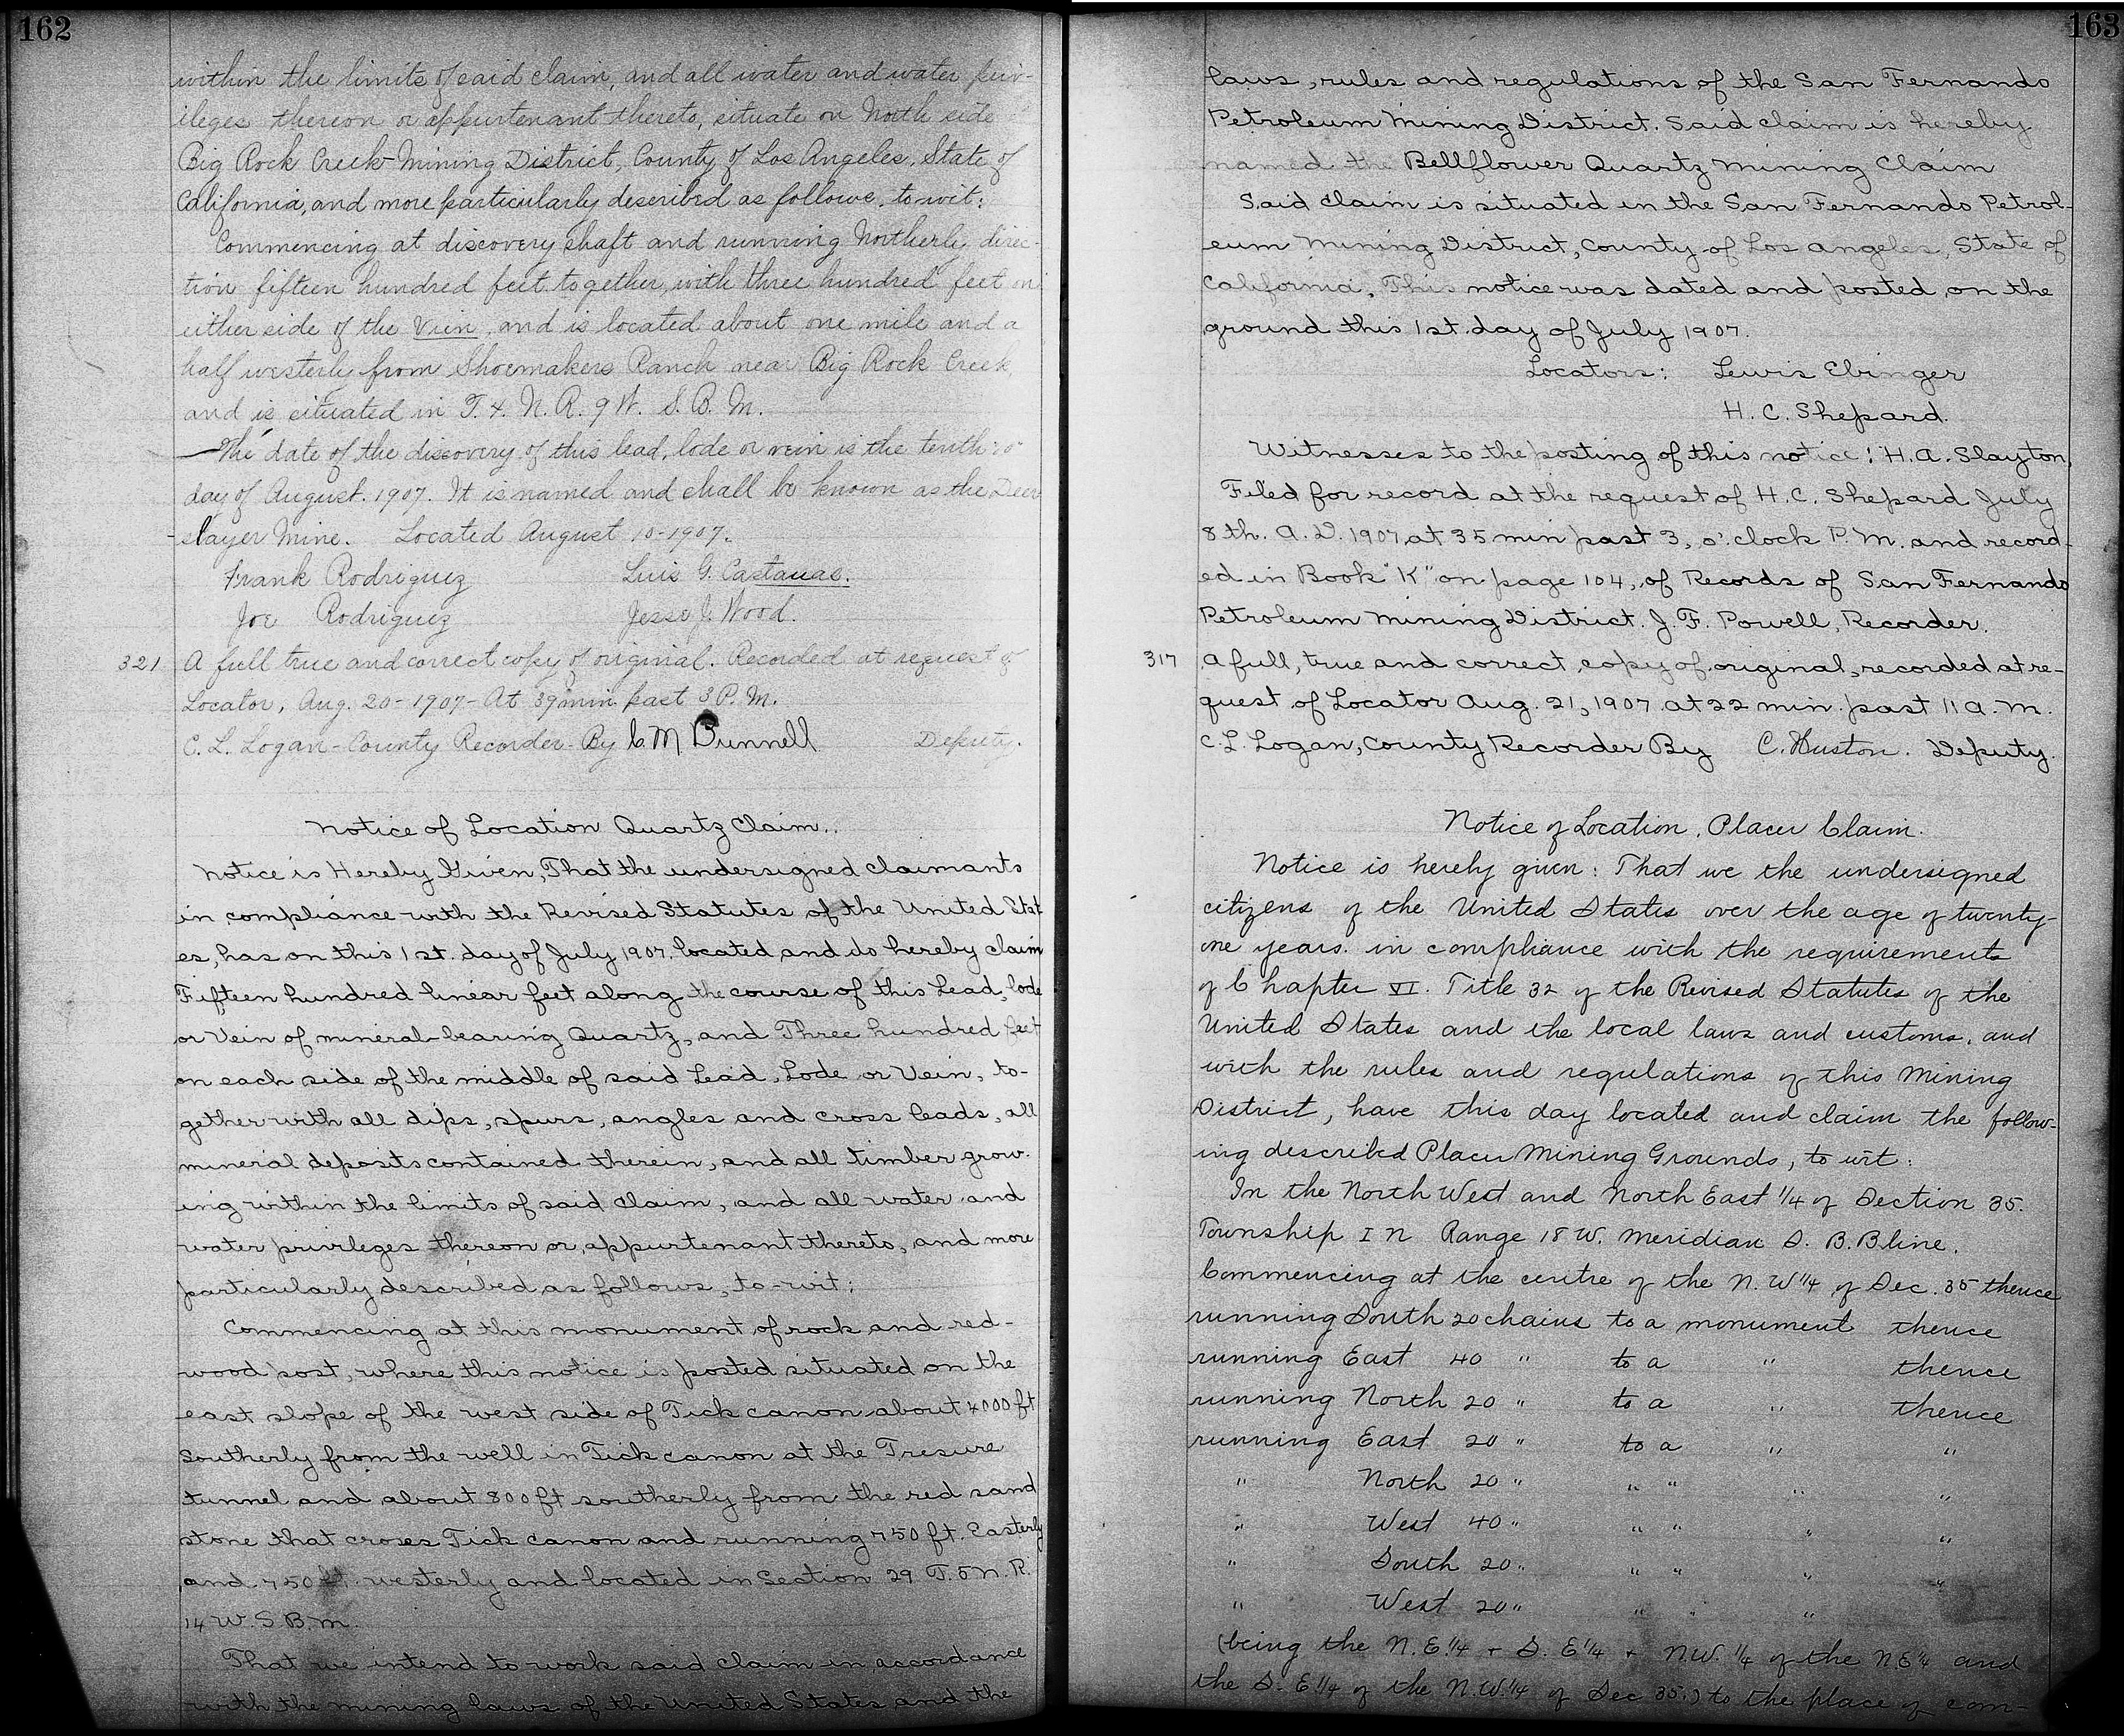 162
within the limits of said claim, and all water and water priv-
ileges thereon or appurtenant thereto, situate on North side
Big Rock Creek Mining District, County of Los Angeles, State of
California, and more particularly described as follows, to-wit:
Commencing at discovery shaft and running Northerly direc-
tion fifteen hundred feet together, with three hundred feet on
either side of the Vein, and is located about one mile and a
half westerly from Shoemakers Ranch near Big Rock Creek,
and is situated in T. 4. N. R. 9 W. S. B. M.
The date of the discovery of this lead, lode or vein is the tenth 10
day of August. 1907. It is named and shall be known as the Deer
-slayer Mine. Located August 10-1907.
Frank Rodriguez Luis G. Castanas.
Joe Rodriguez Jesse J. Wood.
321 A full true and correct copy of original. Recorded at request of
Locator, Aug. 20-1907-At 39 min past 3 P.M.
C. L. Logan-County Recorder-By C. M Bunnell Deputy.
Notice of Location Quartz Claim.
Notice is Hereby Given, That the undersigned claimants
in compliance with the Revised Statutes of the United Stat
es, has on this 1st. day of July 1907. located and do hereby claim
Fifteen hundred linear feet along the course of this Lead, lode
or Vein of mineral-bearing Quartz, and Three hundred feet
on each side of the middle of said Lead, Lode or Vein, to-
gether with all dips, spurs, angles and cross leads, all
mineral deposits contained therein, and all timber grow-
ing within the limits of said claim, and all water and
water privileges thereon or appurtenant thereto, and more
particularly described as follows, to-wit:
Commencing at this monument of rock and red-
wood post, where this notice is posted situated on the
east slope of the west side of Tick canon about 4000 ft
Southerly from the well in Tick canon at the Tresure
tunnel and about 800 ft southerly from the red sand
stone that croses Tick canon and running 750 ft. Easterly
and 750 ft. westerly and located in Section 29 T. 5 N. R.
14 W. S B. M.
That we intend to work said claim in accordance
with the mining laws of the United States and the
163
laws, rules and regulations of the San Fernando
Petroleum Mining District. Said claim is hereby
named the Bellflower Quartz Mining Claim
Said claim is situated in the San Fernando Petrol-
eum Mining District, County of Los Angeles, State of
California. This notice was dated and posted on the
ground this 1st day of July 1907.
Locators: Lewis Ebinger
H. C. Shepard.
Witnesses to the posting of this notice: H. A. Slayton,
Filed for record at the request of H. C. Shepard July
8th. A. D. 1907 at 35 min past 3, o'.clock P. M. and record-
ed in Book "K" on page 104, of Records of San Fernando
Petroleum Mining District. J. F. Powell, Recorder.
317 A full, true and correct copy of original, recorded at re-
quest of Locator Aug. 21, 1907 at 22 min. past 11 A. M.
C. L. Logan, County Recorder By C. Huston. Deputy.
Notice of Location, Placer Claim.
Notice is hereby given: That we the undersigned
citizens of the United States over the age of twenty-
one years. in compliance with the requirements
of Chapter VI. Title 32 of the Revised Statutes of the
United States and the local laws and customs, and
with the rules and regulations of this Mining
District, have this day located and claim the follow-
ing described Placer Mining Grounds, to wit:
In the North West and North East 1/4 of Section 35.
Township I N Range 18 W. Meridian S. B. B line.
Commencing at the centre of the N. W 1/4 of Sec. 35 thence
running South 20 chains to a monument thence
running East 40 " to a " thence
running North 20 " to a " thence
running East 20 " to a " "
" North 20 " " " " "
" West 40 " " " " "
" South 20 " " " " "
" West 20 " " " "
(being the N. E. 1/4 + S. E 1/4 + N.W. 1/4 of the N.E 1/4 and
the S. E 1/4 of the N.W. 1/4 of Sec 35.) to the place of com-